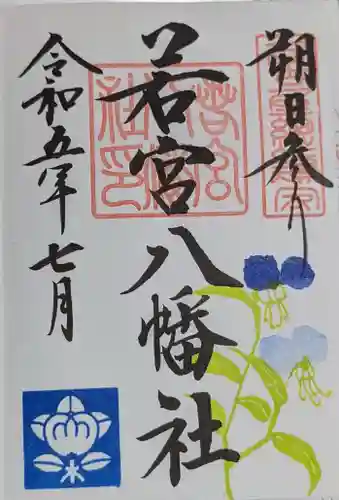 朔日参り
若宮八幡社
令和五年七月